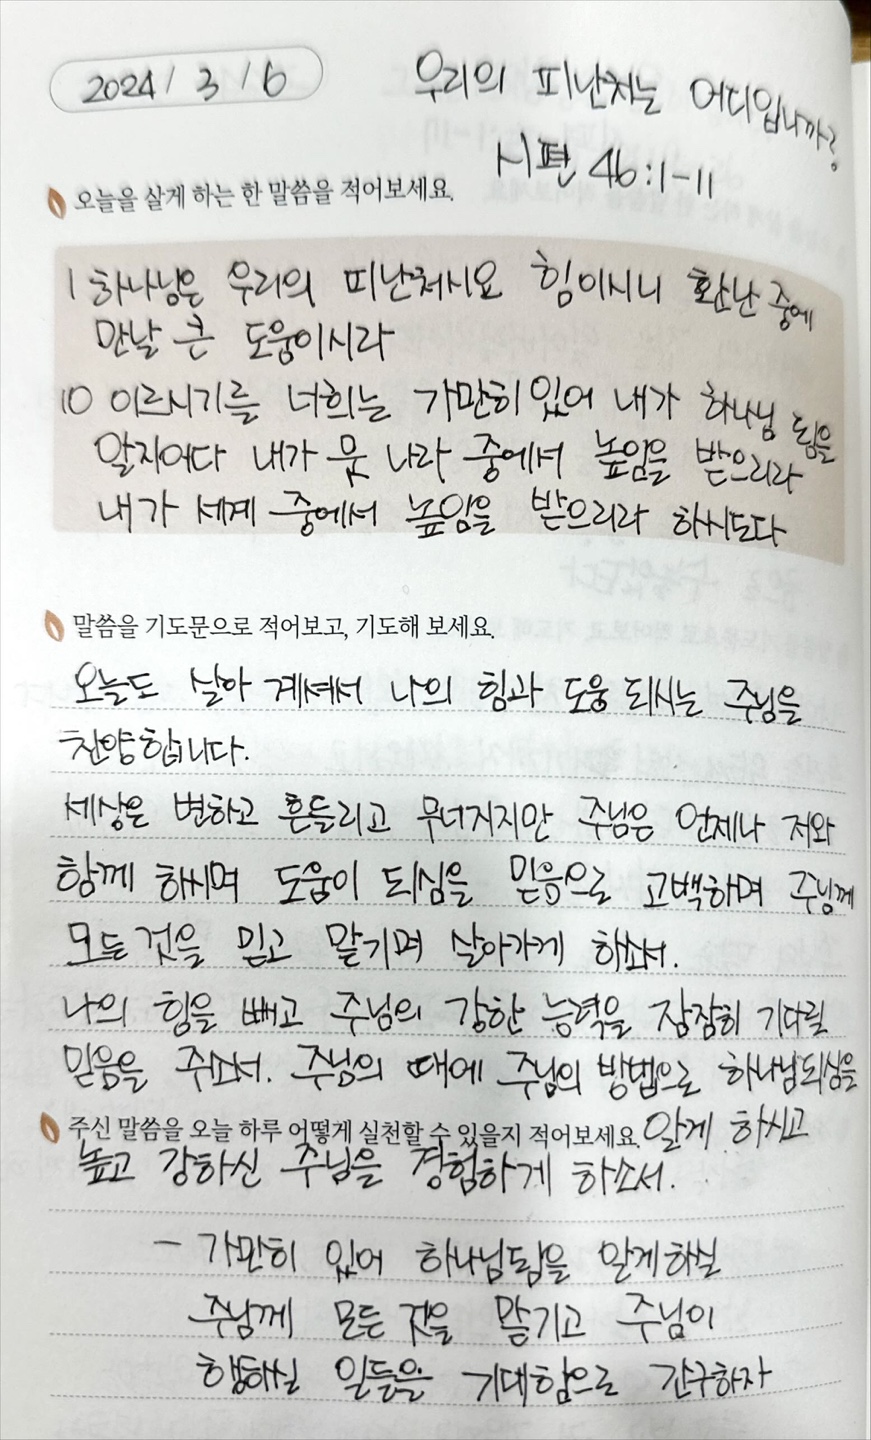 2024 / 3 / 6
우리의 피난처는 어디입니까?
시편 46:1-11
오늘을 살게 하는 한 말씀을 적어보세요.
1 하나님은 우리의 피난처시요 힘이시니 환난 중에
만날 큰 도움이시라
10 이르시기를 너희는 가만히 있어 내가 하나님 됨을
알지어다 내가 뭇 나라 중에서 높임을 받으리라
내가 세계 중에서 높임을 받으리라 하시도다
말씀을 기도문으로 적어보고, 기도해 보세요.
오늘도 살아 계셔서 나의 힘과 도움 되시는 주님을
찬양합니다.
세상은 변하고 흔들리고 무너지지만 주님은 언제나 저와
함께 하시며 도움이 되심을 믿음으로 고백하며 주님께
모든 것을 믿고 맡기며 살아가게 하소서.
나의 힘을 빼고 주님의 강한 능력을 잠잠히 기다릴
믿음을 주소서. 주님의 때에 주님의 방법으로 하나님되심을
주신 말씀을 오늘 하루 어떻게 실천할 수 있을지 적어보세요. 알게 하시고
높고 강하신 주님을 경험하게 하소서.
- 가만히 있어 하나님됨을 알게하실
주님께 모든 것을 맡기고 주님이
행하실 일들을 기대함으로 간구하자